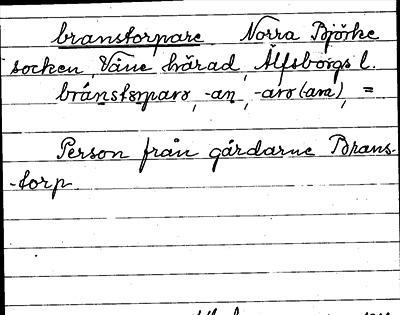 branstorpare Norra Björke
socken, Väne härad, Älfsborgs l.
bránstorparə, -an, -arə (ara), =
Person från gårdarne Brans-
-torp